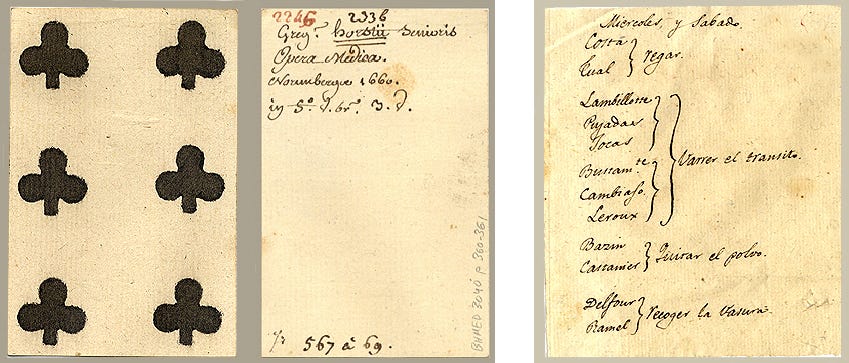 2246 2336
Greg.^r horstii Senioris
Opera Medica.
Norimbergæ 1660.
in
567 â 69.
BHMED 3040 p 360-361
Miercoles, y Sabado.
Costa
Tual
regar.
Lambillotte
Pujadas
Jocas
Bustam.^te
Cambiaso
Leroux
Varrer el transito.
Bazin
Castanier
Quitar el polvo.
Delfour
Ramel
recoger la vasura.